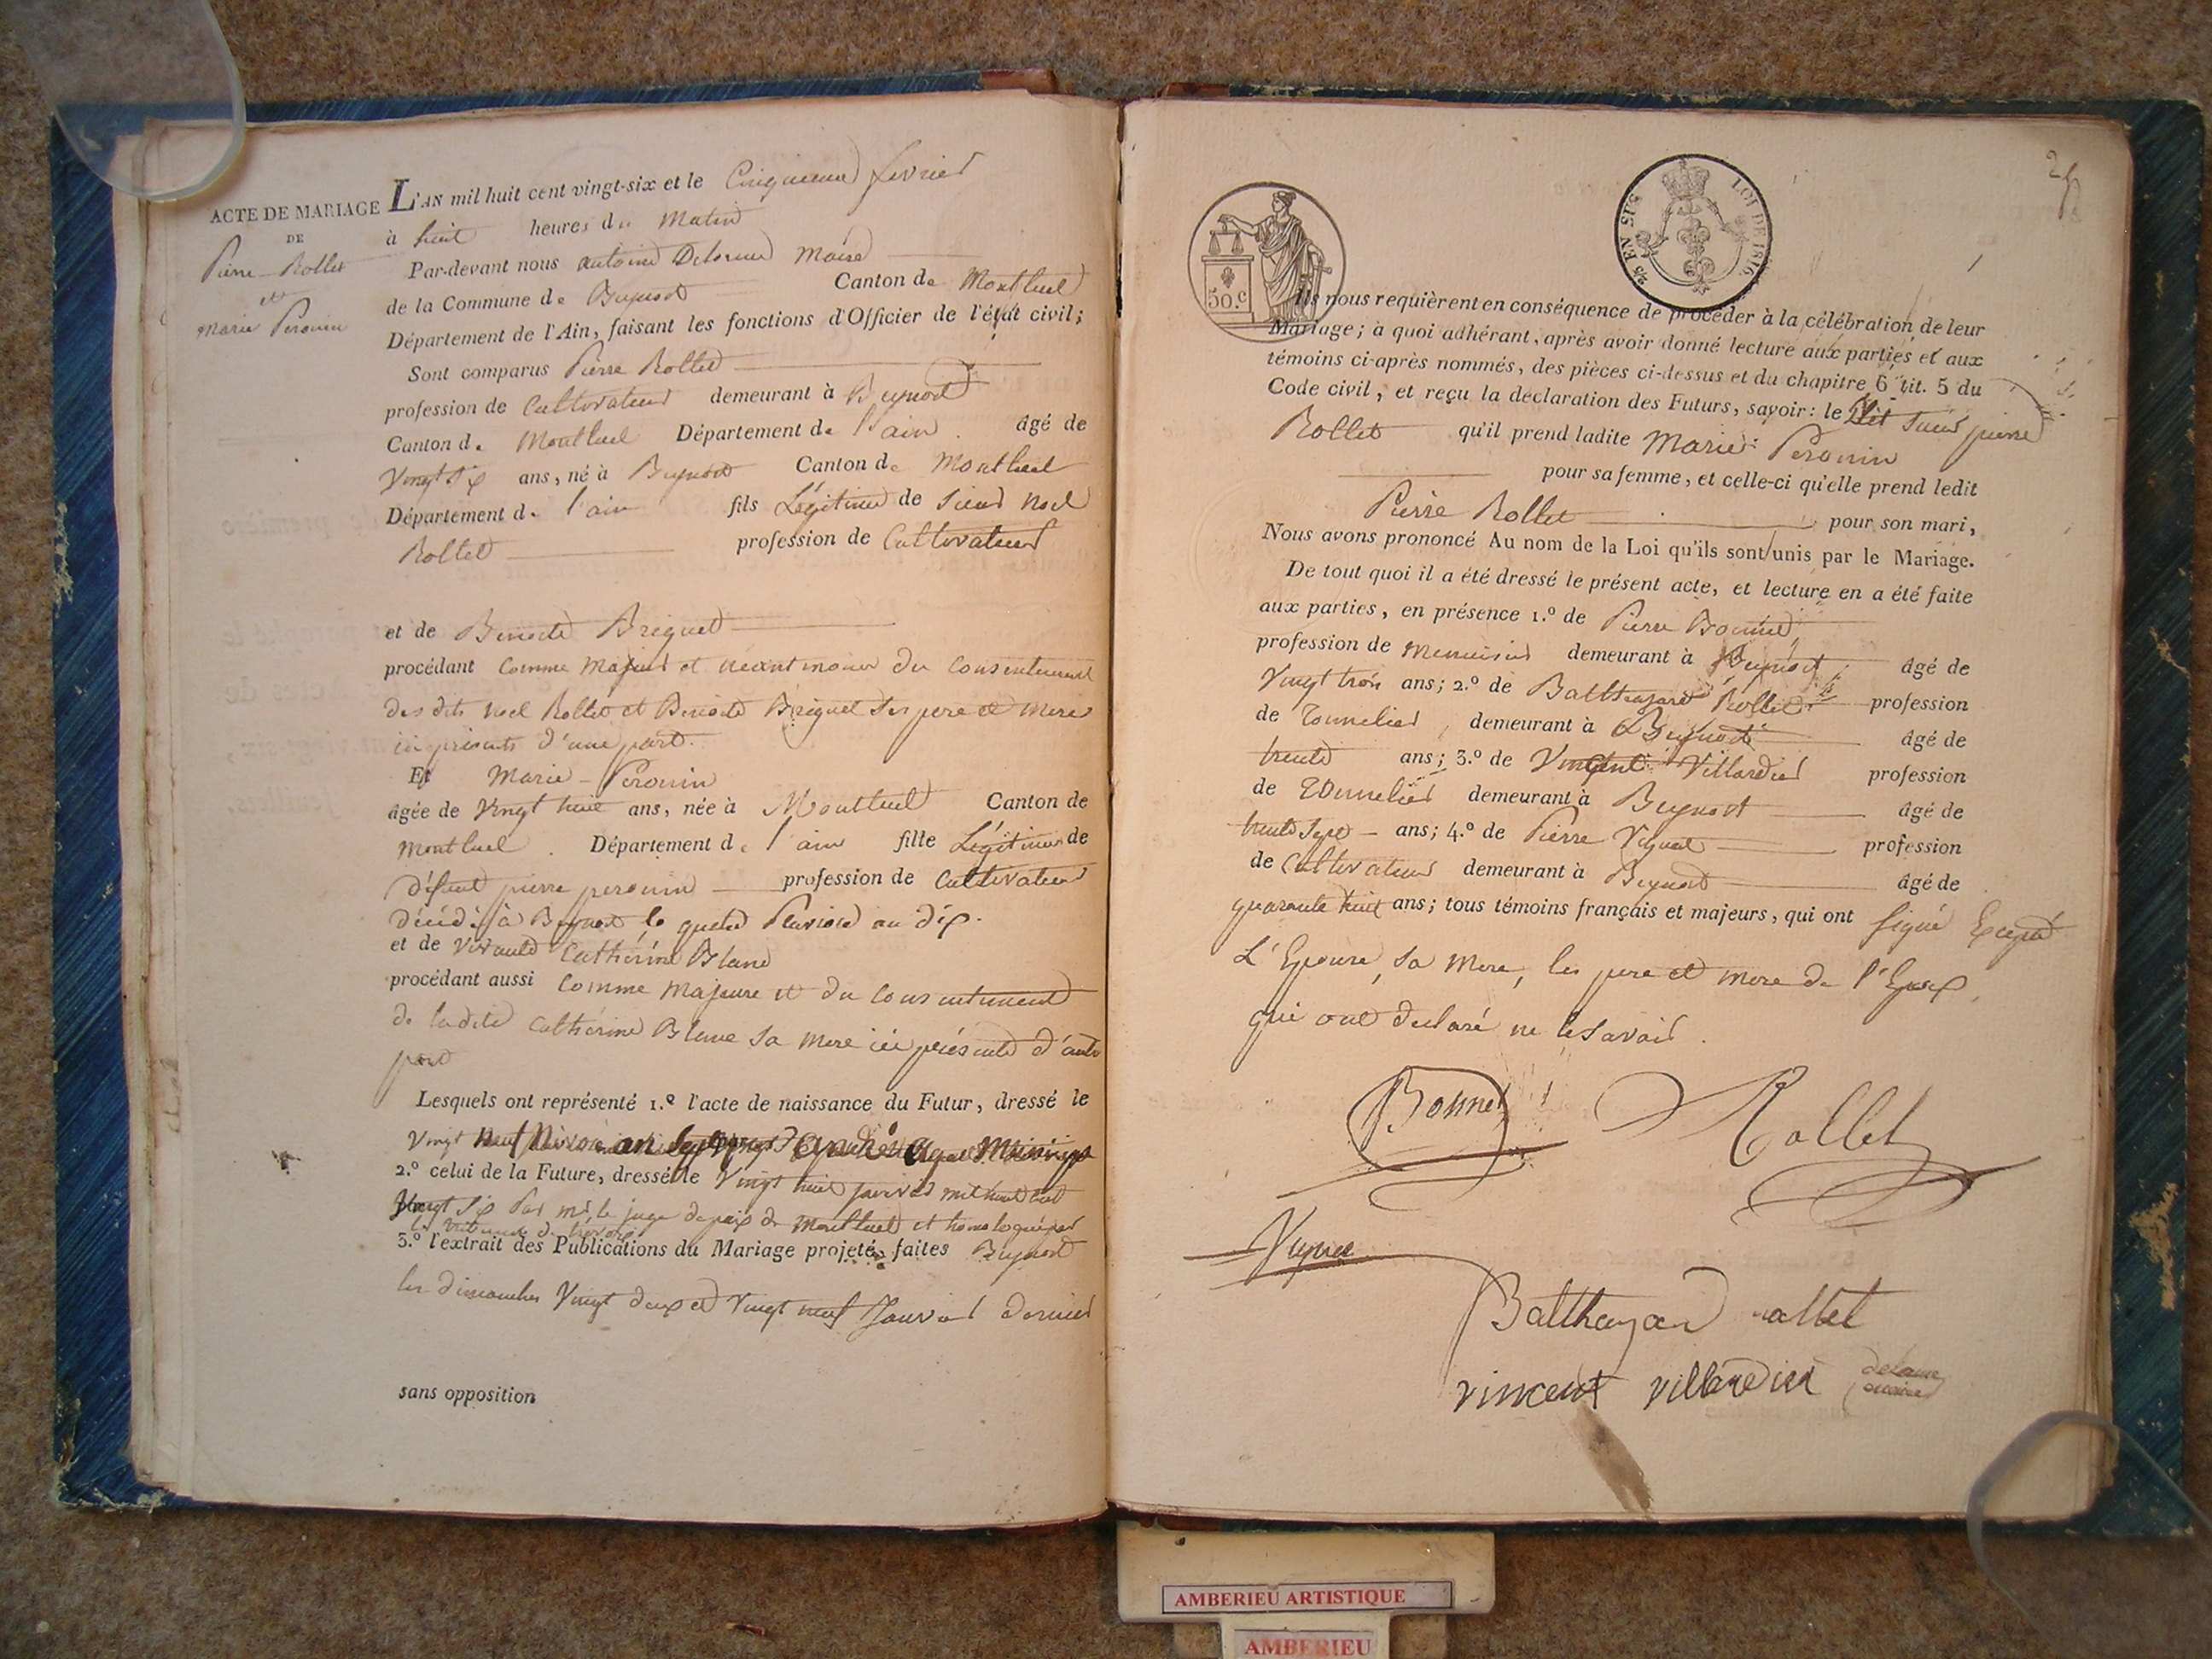 ACTE DE MARIAGE
DE
Pierre Rollet
et
Marie Peronin
L'AN mil huit cent vingt-six et le Cinquieme fevrier
à huit heures du Matin
Par-devant nous antoine Delorme Maire
de la Commune de Beynost Canton de Montluel
Département de l'Ain, faisant les fonctions d'Officier de l'état civil;
Sont comparus Pierre Rollet
profession de Cultivateur demeurant à Beynost
Canton de Montluel Département de l'ain âgé de
Vingt six ans, né à Beynost Canton de Montluel
Département de l'ain fils Légitime de Sieur Noel
Rollet profession de Cultivateur
et de Benoite Briguet
procédant Comme Majeur et néantmoins du Consentement
des dits Noel Rollet et Benoite Briguet ses pere et mere
ici présents d'une part.
Et Marie Peronin
âgée de Vingt huit ans, née à Montluel Canton de
Montluel Département de l'ain fille Légitime de
Défunt pierre peronin profession de Cultivateur
décédé à Beynost le quatre Pluviose an dix.
et de vivante Catherine Blanc
procédant aussi Comme Majeure et du Consentement
de ladite Catherine Blanc Sa Mere ici présente d'autre
part
Lesquels ont représenté 1.º l'acte de naissance du Futur, dressé le
Vingt neuf Nivose an
2.º celui de la Future, dressé le Vingt huit janvier mil huit cent
Vingt Six Par mr. le juge de paix de Montluel et homologué par
le tribunal de trévoux
3.º l'extrait des Publications du Mariage projeté, faites Beynost
les dimanches Vingt deux et Vingt neuf Janvier dernier
sans opposition
50.c
LOI DE 1816.
25 EN SUS
Ils nous requièrent en conséquence de procéder à la célébration de leur
Mariage; à quoi adhérant, après avoir donné lecture aux parties et aux
témoins ci-après nommés, des pièces ci-dessus et du chapitre 6 tit. 5 du
Code civil, et reçu la déclaration des Futurs, savoir: le dit Sieur pierre
Rollet qu'il prend ladite Marie Peronin
pour sa femme, et celle-ci qu'elle prend ledit
Pierre Rollet pour son mari,
Nous avons prononcé Au nom de la Loi qu'ils sont unis par le Mariage.
De tout quoi il a été dressé le présent acte, et lecture en a été faite
aux parties, en présence 1.º de Pierre Bonnet
profession de Menuisier demeurant à Beynost âgé de
Vingt trois ans; 2.º de Balthazard Rollet profession
de Tonnelier demeurant à Beynost âgé de
trente ans; 3.º de Vincent Villardier profession
de Tonnelier demeurant à Beynost âgé de
trente Sept ans; 4.º de Pierre profession
de Cultivateur demeurant à Beynost âgé de
quarante huit ans; tous témoins français et majeurs, qui ont Signé Excepté
L'Epouse, Sa Mere, les pere et mere de l'Epoux,
qui ont declaré ne le savoir.
Bonnet Rollet
Balthazard Rollet
vincent villardier
delorme
maire
AMBERIEU ARTISTIQUE
AMBERIEU